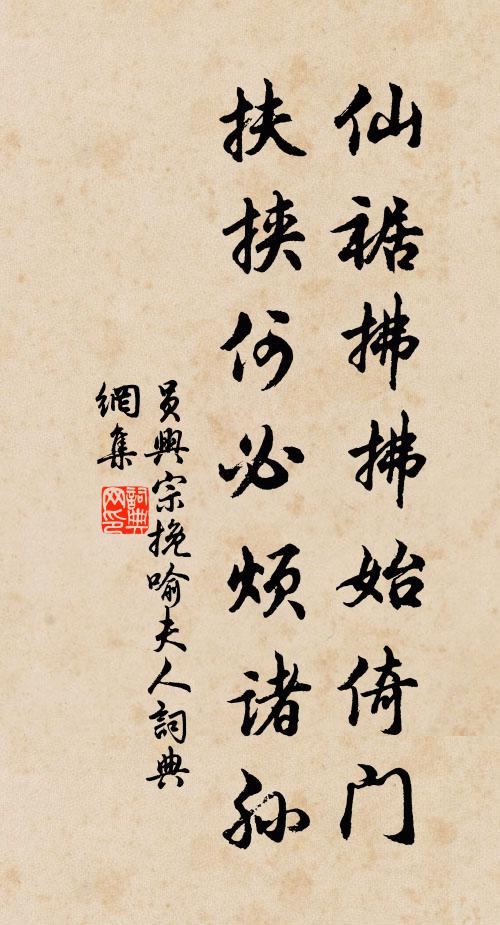 仙裾拂拂始倚门
扶挟何必烦诸孙
員興宗挽喻夫人詞典
網集
詞典
网印